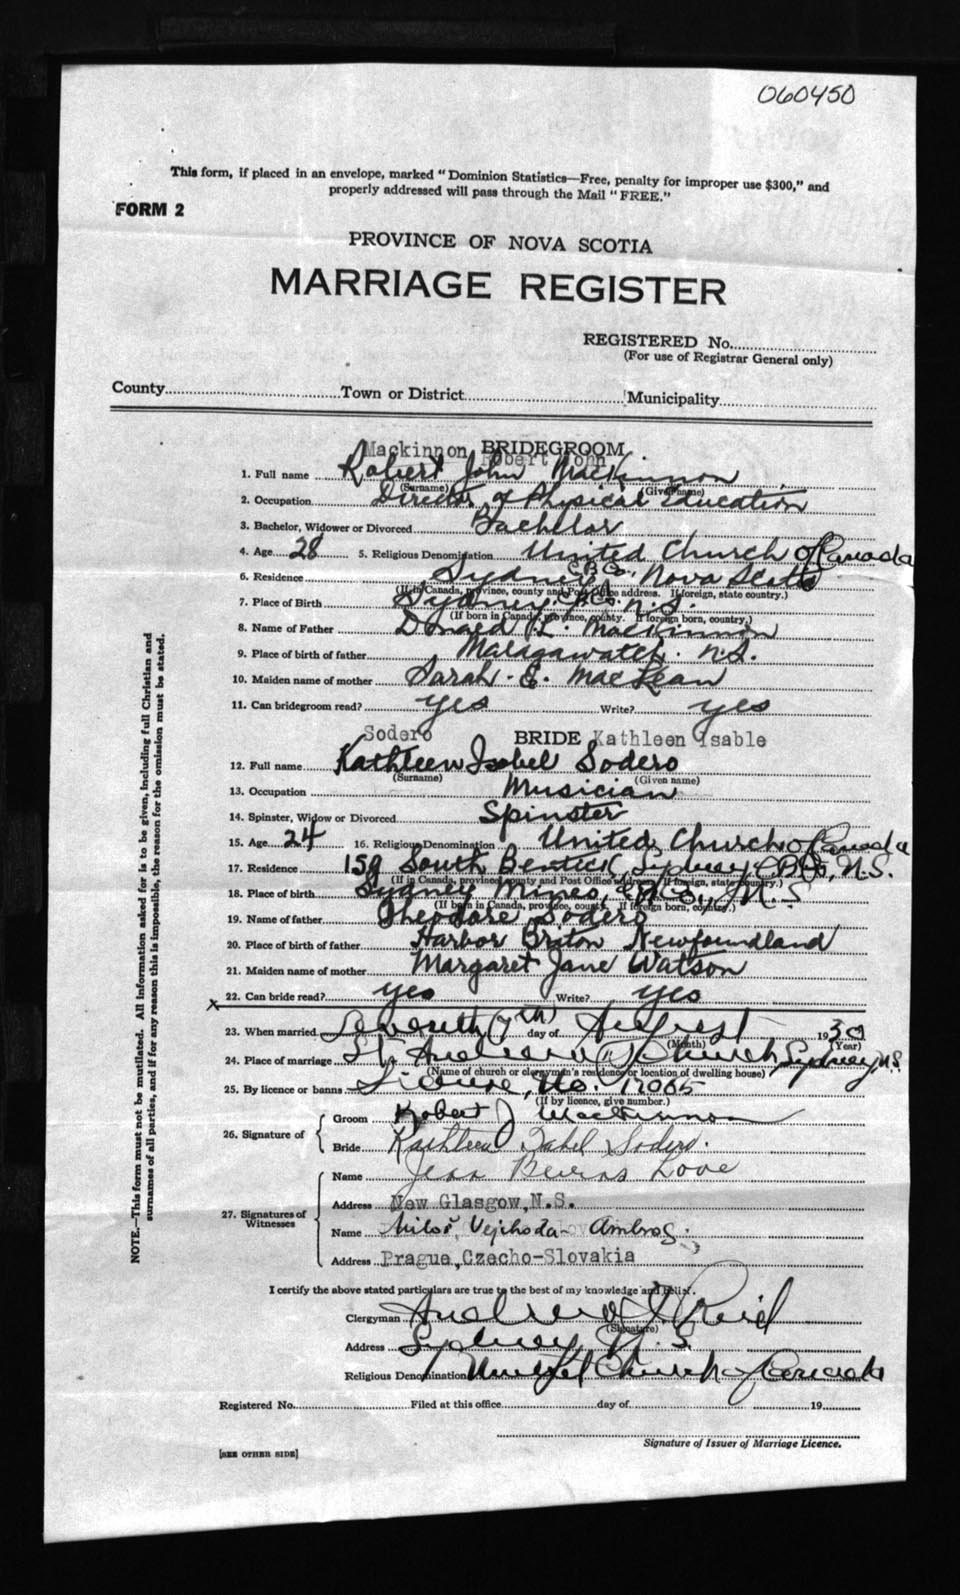 060450
This form, if placed in an envelope, marked "Dominion Statistics—Free, penalty for improper use $300," and
properly addressed will pass through the Mail "FREE."
FORM 2
PROVINCE OF NOVA SCOTIA
MARRIAGE REGISTER
REGISTERED No.
(For use of Registrar General only)
County Town or District Municipality
Mackinnon BRIDEGROOM Robert John
1. Full name Robert John MacKinnon
(Surname) (Given name)
2. Occupation Director of Physical Education
3. Bachelor, Widower or Divorced Bachelor
4. Age 28 5. Religious Denomination United Church of Canada
6. Residence Sydney C.B.Co., Nova Scotia
(If in Canada, province, county and Post Office address. If foreign, state country.)
7. Place of Birth Sydney C.B.Co. N.S.
(If born in Canada, province, county. If foreign born, country.)
8. Name of Father Donald L. MacKinnon
9. Place of birth of father Malagawatch. N.S.
10. Maiden name of mother Sarah. E. MacLean
11. Can bridegroom read? yes Write? yes
Sodero BRIDE Kathleen Isable
12. Full name Kathleen Isobel Sodero
(Surname) (Given name)
13. Occupation Musician
14. Spinster, Widow or Divorced Spinster
15. Age 24 16. Religious Denomination United Church of Canada
17. Residence 159 South Bentick, Sydney C.B.Co, N.S.
(If in Canada, province, county and Post Office address. If foreign, state country.)
18. Place of birth Sydney Mines, C.B.Co., N.S
(If born in Canada, province, county. If foreign born, country.)
19. Name of father Theodore Sodero
20. Place of birth of father Harbor Briton Newfoundland
21. Maiden name of mother Margaret Jane Watson
x 22. Can bride read? yes Write? yes
23. When married Seventh (7th) day of August 1930
(Month) (Year)
24. Place of marriage St. Andrew's Church Sydney N.S.
(Name of church or clergyman's residence or location of dwelling house)
25. By licence or banns License, No. 17065
(If by licence, give number.)
26. Signature of Groom Robert J MacKinnon
Bride Kathleen Isabel Sodero.
27. Signatures of Witnesses
Name Jean Love
Address New Glasgow, N.S.
Name Miloš Vejchoda- Ambros.
Address Prague, Czecho-Slovakia
I certify the above stated particulars are true to the best of my knowledge and belief.
Clergyman Andrew D. Reid
(Signature)
Address Sydney N.S
Religious Denomination United Church of Canada
Registered No. Filed at this office day of 19
Signature of Issuer of Marriage Licence.
[SEE OTHER SIDE]
NOTE.—This form must not be mutilated. All information asked for is to be given, including full Christian and
surnames of all parties, and if for any reason this is impossible, the reason for the omission must be stated.